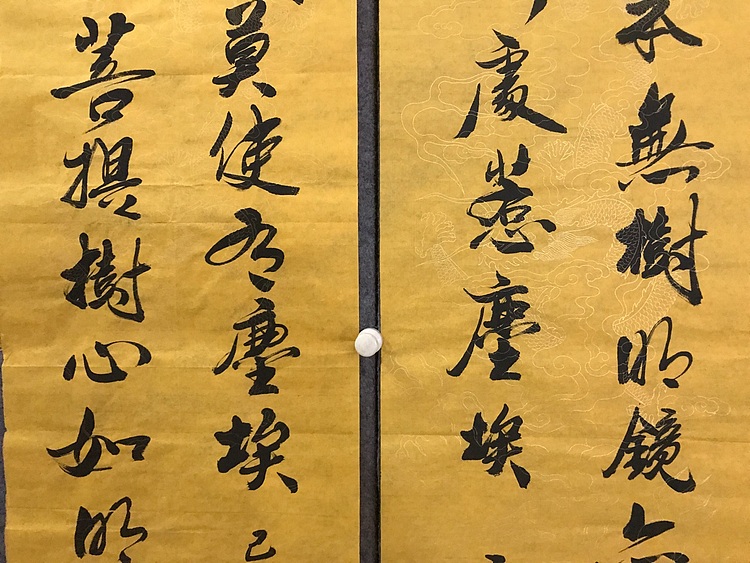 本無樹明鏡亦
處惹塵埃
莫使有塵埃己
菩提樹心如明